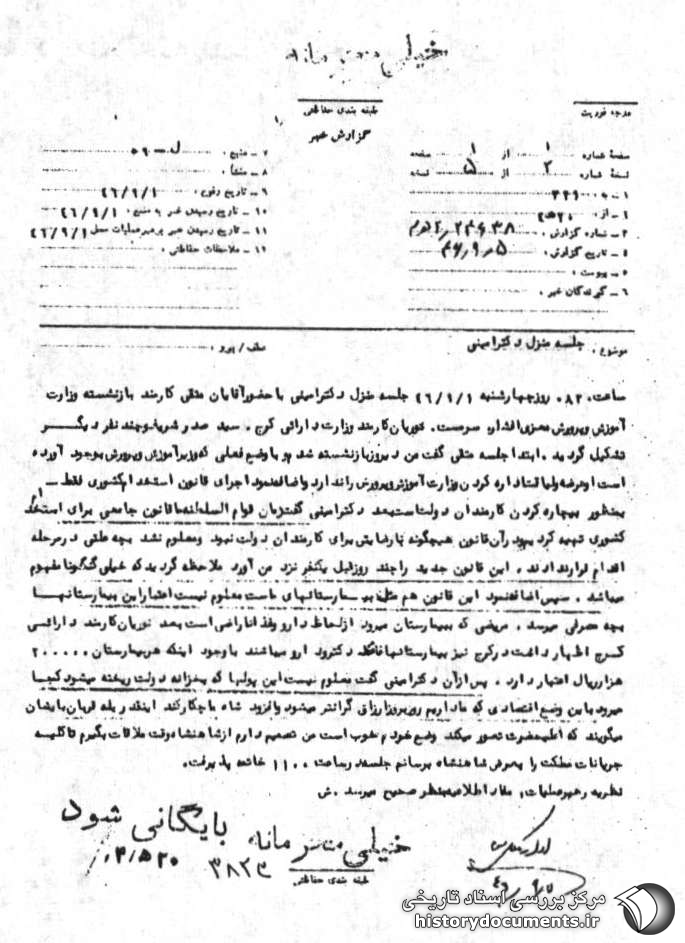 خیلی محرمانه
درجه فوریت
طبقه بندی حفاظتی
گزارش خبر
صفحه شماره ۱ از ۱ صفحه
نسخه شماره ۲ از ۵ نسخه
۱ ـ به ۳۴۱
۲ ـ از ۲۰ ه‍ ۲
۳ ـ شماره گزارش
۴ ـ تاریخ گزارش ۴۶٫۹٫۵
۵ ـ پیوست
۶ ـ گیرندگان خبر
۷ ـ منبع
۸ ـ منشأ
۹ ـ تاریخ وقوع ۴۶/۹/۱
۱۰ ـ تاریخ رسیدن خبر به منبع ۴۶/۹/۱
۱۱ ـ تاریخ رسیدن خبر برهبر عملیات محل ۴۶/۹/۱
۱۲ ـ ملاحظات حفاظتی
موضوع جلسه منزل دکتر امینی
عطف / پیرو
ساعت ۰۸۳۰ روز چهارشنبه ۴۶/۹/۱ جلسه منزل دکتر امینی با حضور آقایان متقی کارمند بازنشسته وزارت
آموزش و پرورش معزی افشار، سرمست، نوریان کارمند وزارت دارائی کرج، سید صدر شریف و چند نفر دیگر
تشکیل گردید. ابتدا جلسه متقی گفت من دیروز بازنشسته شدم و با وضع فعلی که وزیر آموزش و پرورش بوجود آورده
است او عرضه و لیاقت اداره کردن وزارت آموزش و پرورش را ندارد و اضافه نمود اجرای قانون استخدام کشوری فقط
بمنظور بیچاره کردن کارمندان دولت است بعد دکتر امینی گفت زمان قوام السلطنه ما قانون جامعی برای استخدام
کشوری تهیه کرده بودیم آن قانون هیچگونه نارضایتی برای کارمندان دولت نبود و معلوم نشد بچه علتی در مرحله
اقدام قرار ندادند. این قانون جدید را چند روز قبل یکنفر نزد من آورد ملاحظه گردید که خیلی گنگ و نامفهوم
میباشد. سپس اضافه نمود این قانون هم مثل بیمارستانهای ماست معلوم نیست اعتبار این بیمارستانها
بچه مصرفی میرسد. مریضی که ببیمارستان میرود از لحاظ دارو و غذا ناراضی است بعد نوریان کارمند دارائی
کرج اظهار داشت در کرج نیز بیمارستانها فاقد دکتر و دارو میباشند با وجود اینکه هر بیمارستان ۲۰۰۰۰۰
هزار ریال اعتبار دارد. پس از آن دکتر امینی گفت معلوم نیست این پولها که بخزانه دولت ریخته میشود کجا
میرود با این وضع اقتصادی که ما داریم روز بروز ارزاق گرانتر میشود و افزود شاه ما چکار کند اینقدر بله قربان بایشان
میگویند که اعلیحضرت تصور میکند وضع خود هم خوب است من تصمیم دارم از شاهنشاه وقت ملاقات بگیرم تا کلیه
جریانات مملکت را بعرض شاهنشاه برسانم جلسه در ساعت ۱۱۰۰ خاتمه پذیرفت.
نظریه رهبر عملیات: مفاد اطلاعیه بنظر صحیح میرسد. ش
بایگانی شود
خیلی محرمانه
طبقه بندی حفاظتی
مرکز بررسی اسناد تاریخی
historydocuments.ir